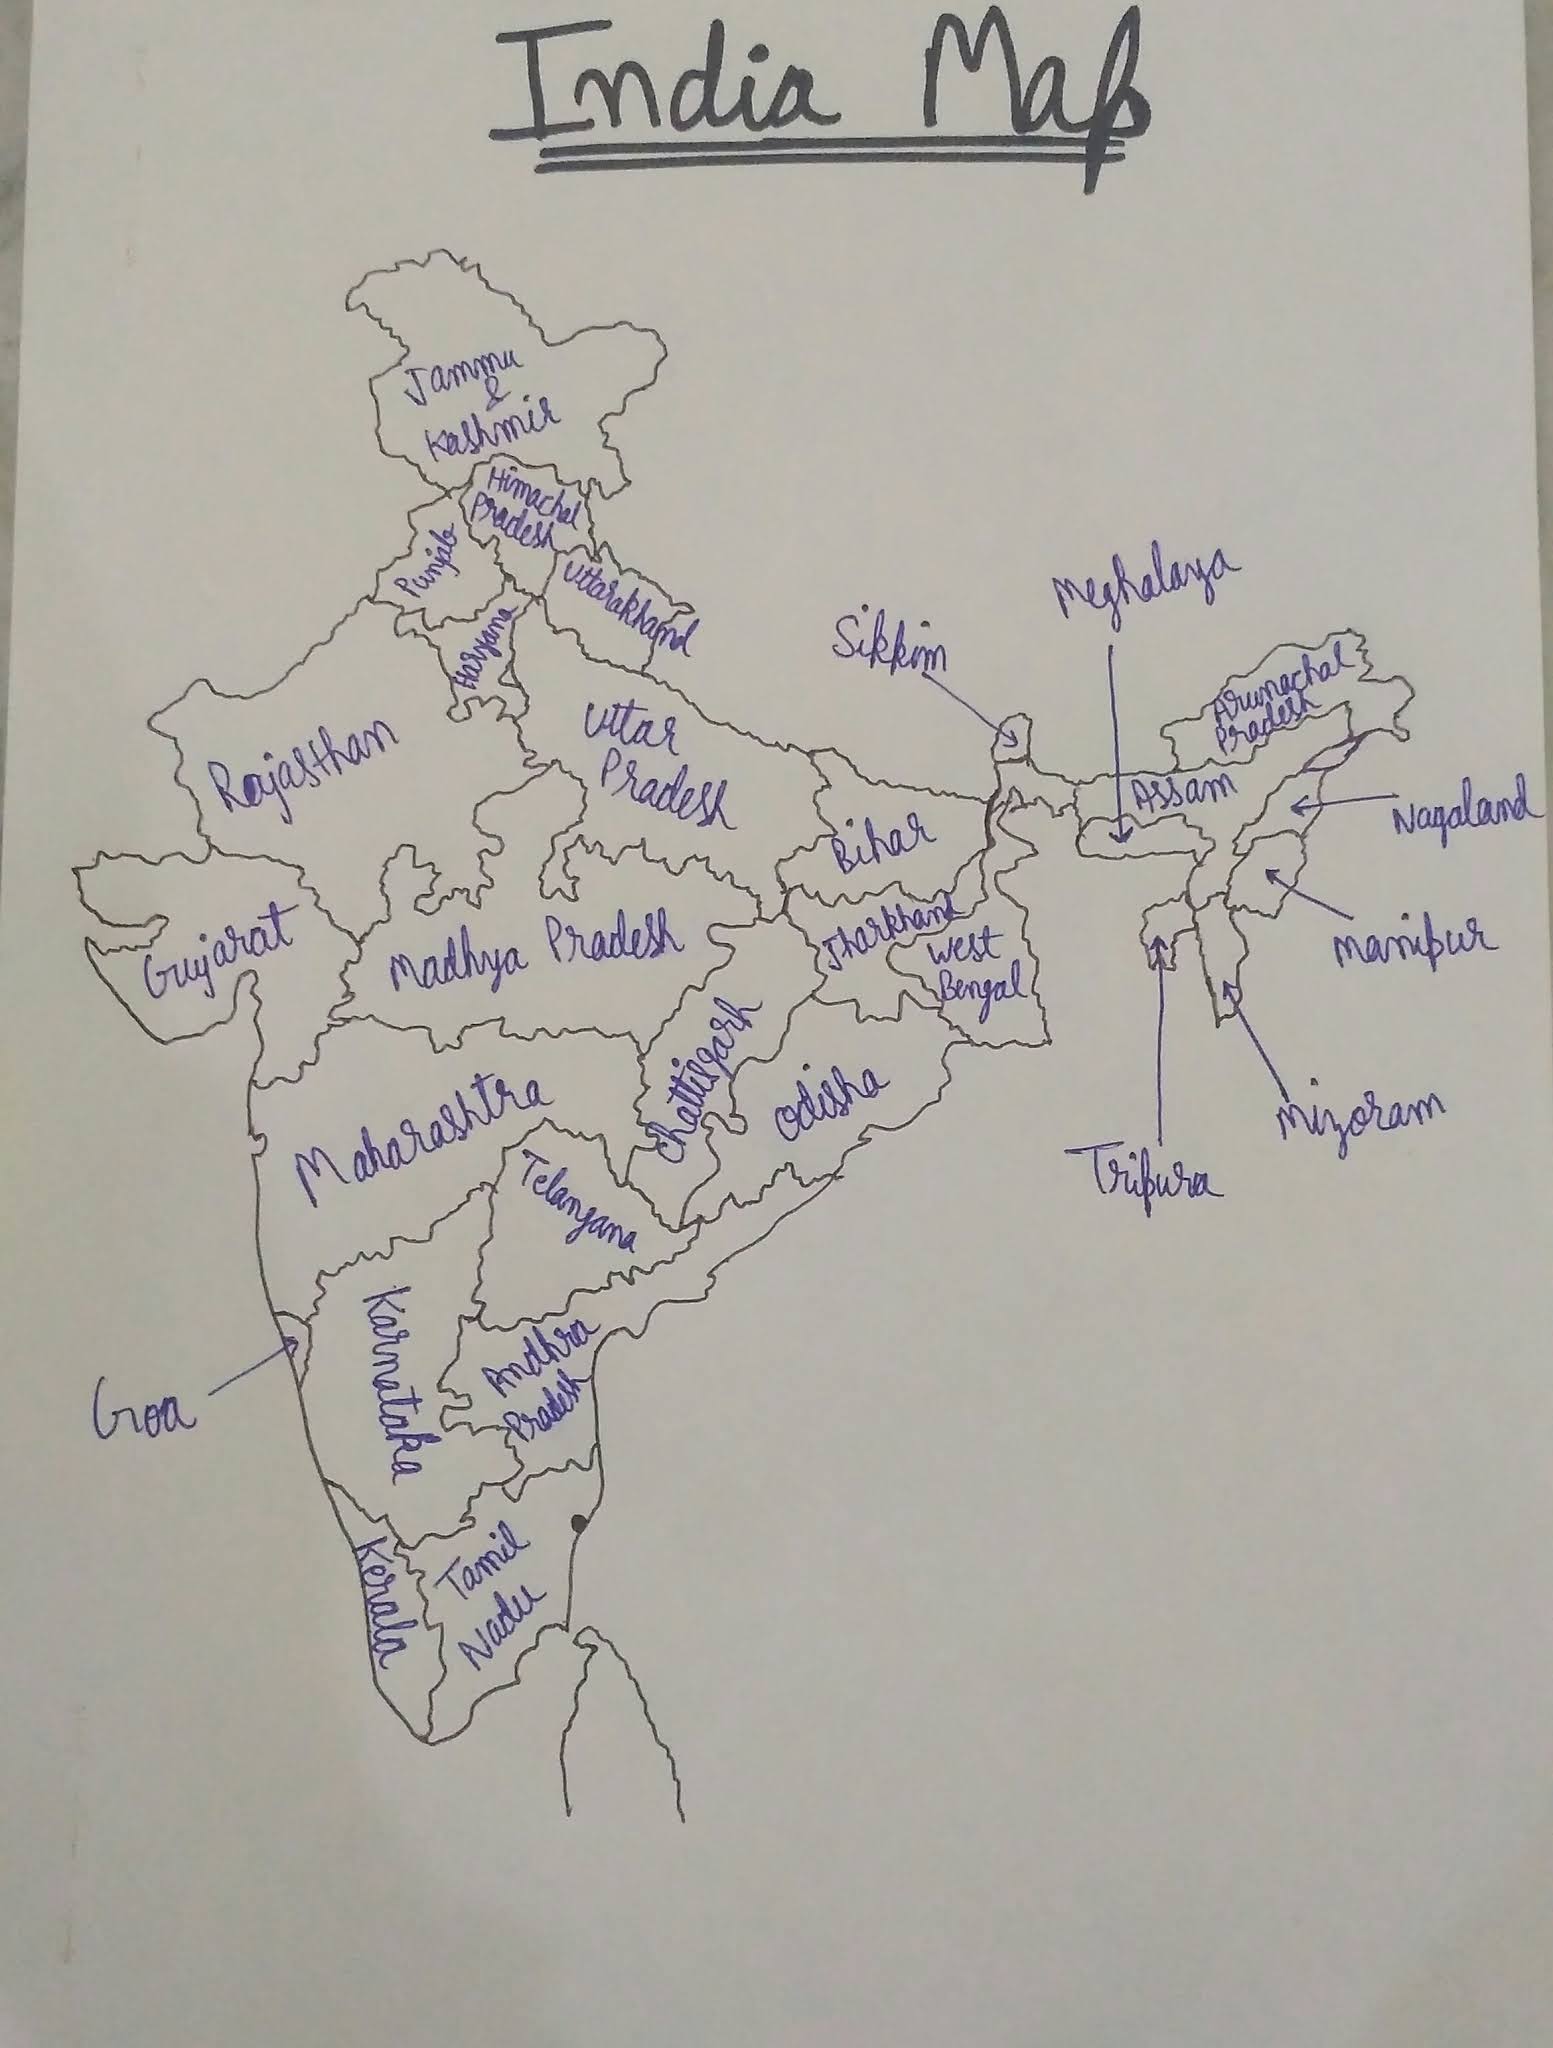 India Map
Jammu
&
Kashmir
Himachal
Pradesh
Punjab
Uttarakhand
Haryana
Meghalaya
Sikkim
Arunachal
Pradesh
Rajasthan
Uttar
Pradesh
Assam
Nagaland
Bihar
Gujarat
Madhya Pradesh
Jharkhand
West
Bengal
Manipur
Chattisgarh
Odisha
Maharashtra
Mizoram
Tripura
Telangana
Karnataka
Andhra
Pradesh
Goa
Kerala
Tamil
Nadu